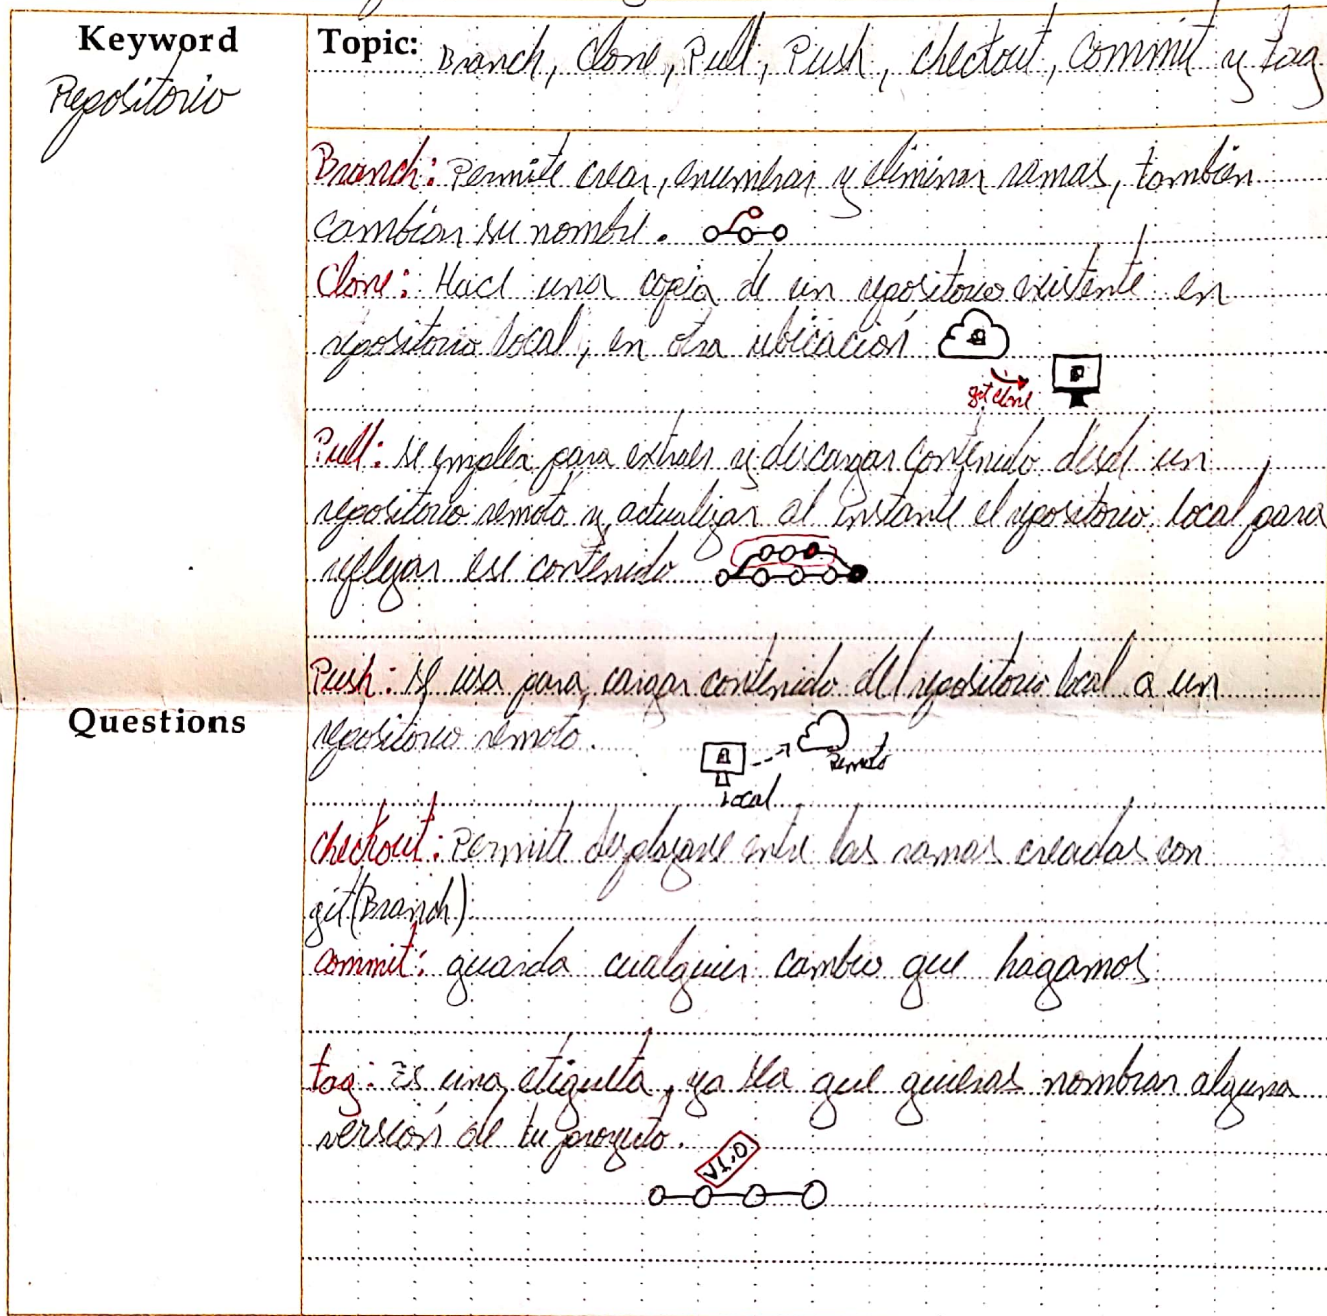 Keyword
Repositorio
Topic: Branch, Clone, Pull, Push, checkout, commit y tag
Branch: Permite crear, enumerar y eliminar ramas, también
cambiar su nombre.
Clone: Hace una copia de un repositorio existente en
repositorio local, en otra ubicación
git clone
Pull: se emplea para extraer y descargar contenido desde un
repositorio remoto y actualizar al instante el repositorio local para
reflejar ese contenido
Push: se usa para cargar contenido del repositorio local a un
Questions
repositorio remoto.
Remoto
Local
checkout: Permite desplazarse entre las ramas creadas con
git (Branch)
commit: guarda cualquier cambio que hagamos
tag: Es una etiqueta, ya sea que quieras nombrar alguna
versión de tu proyecto.
V1.0